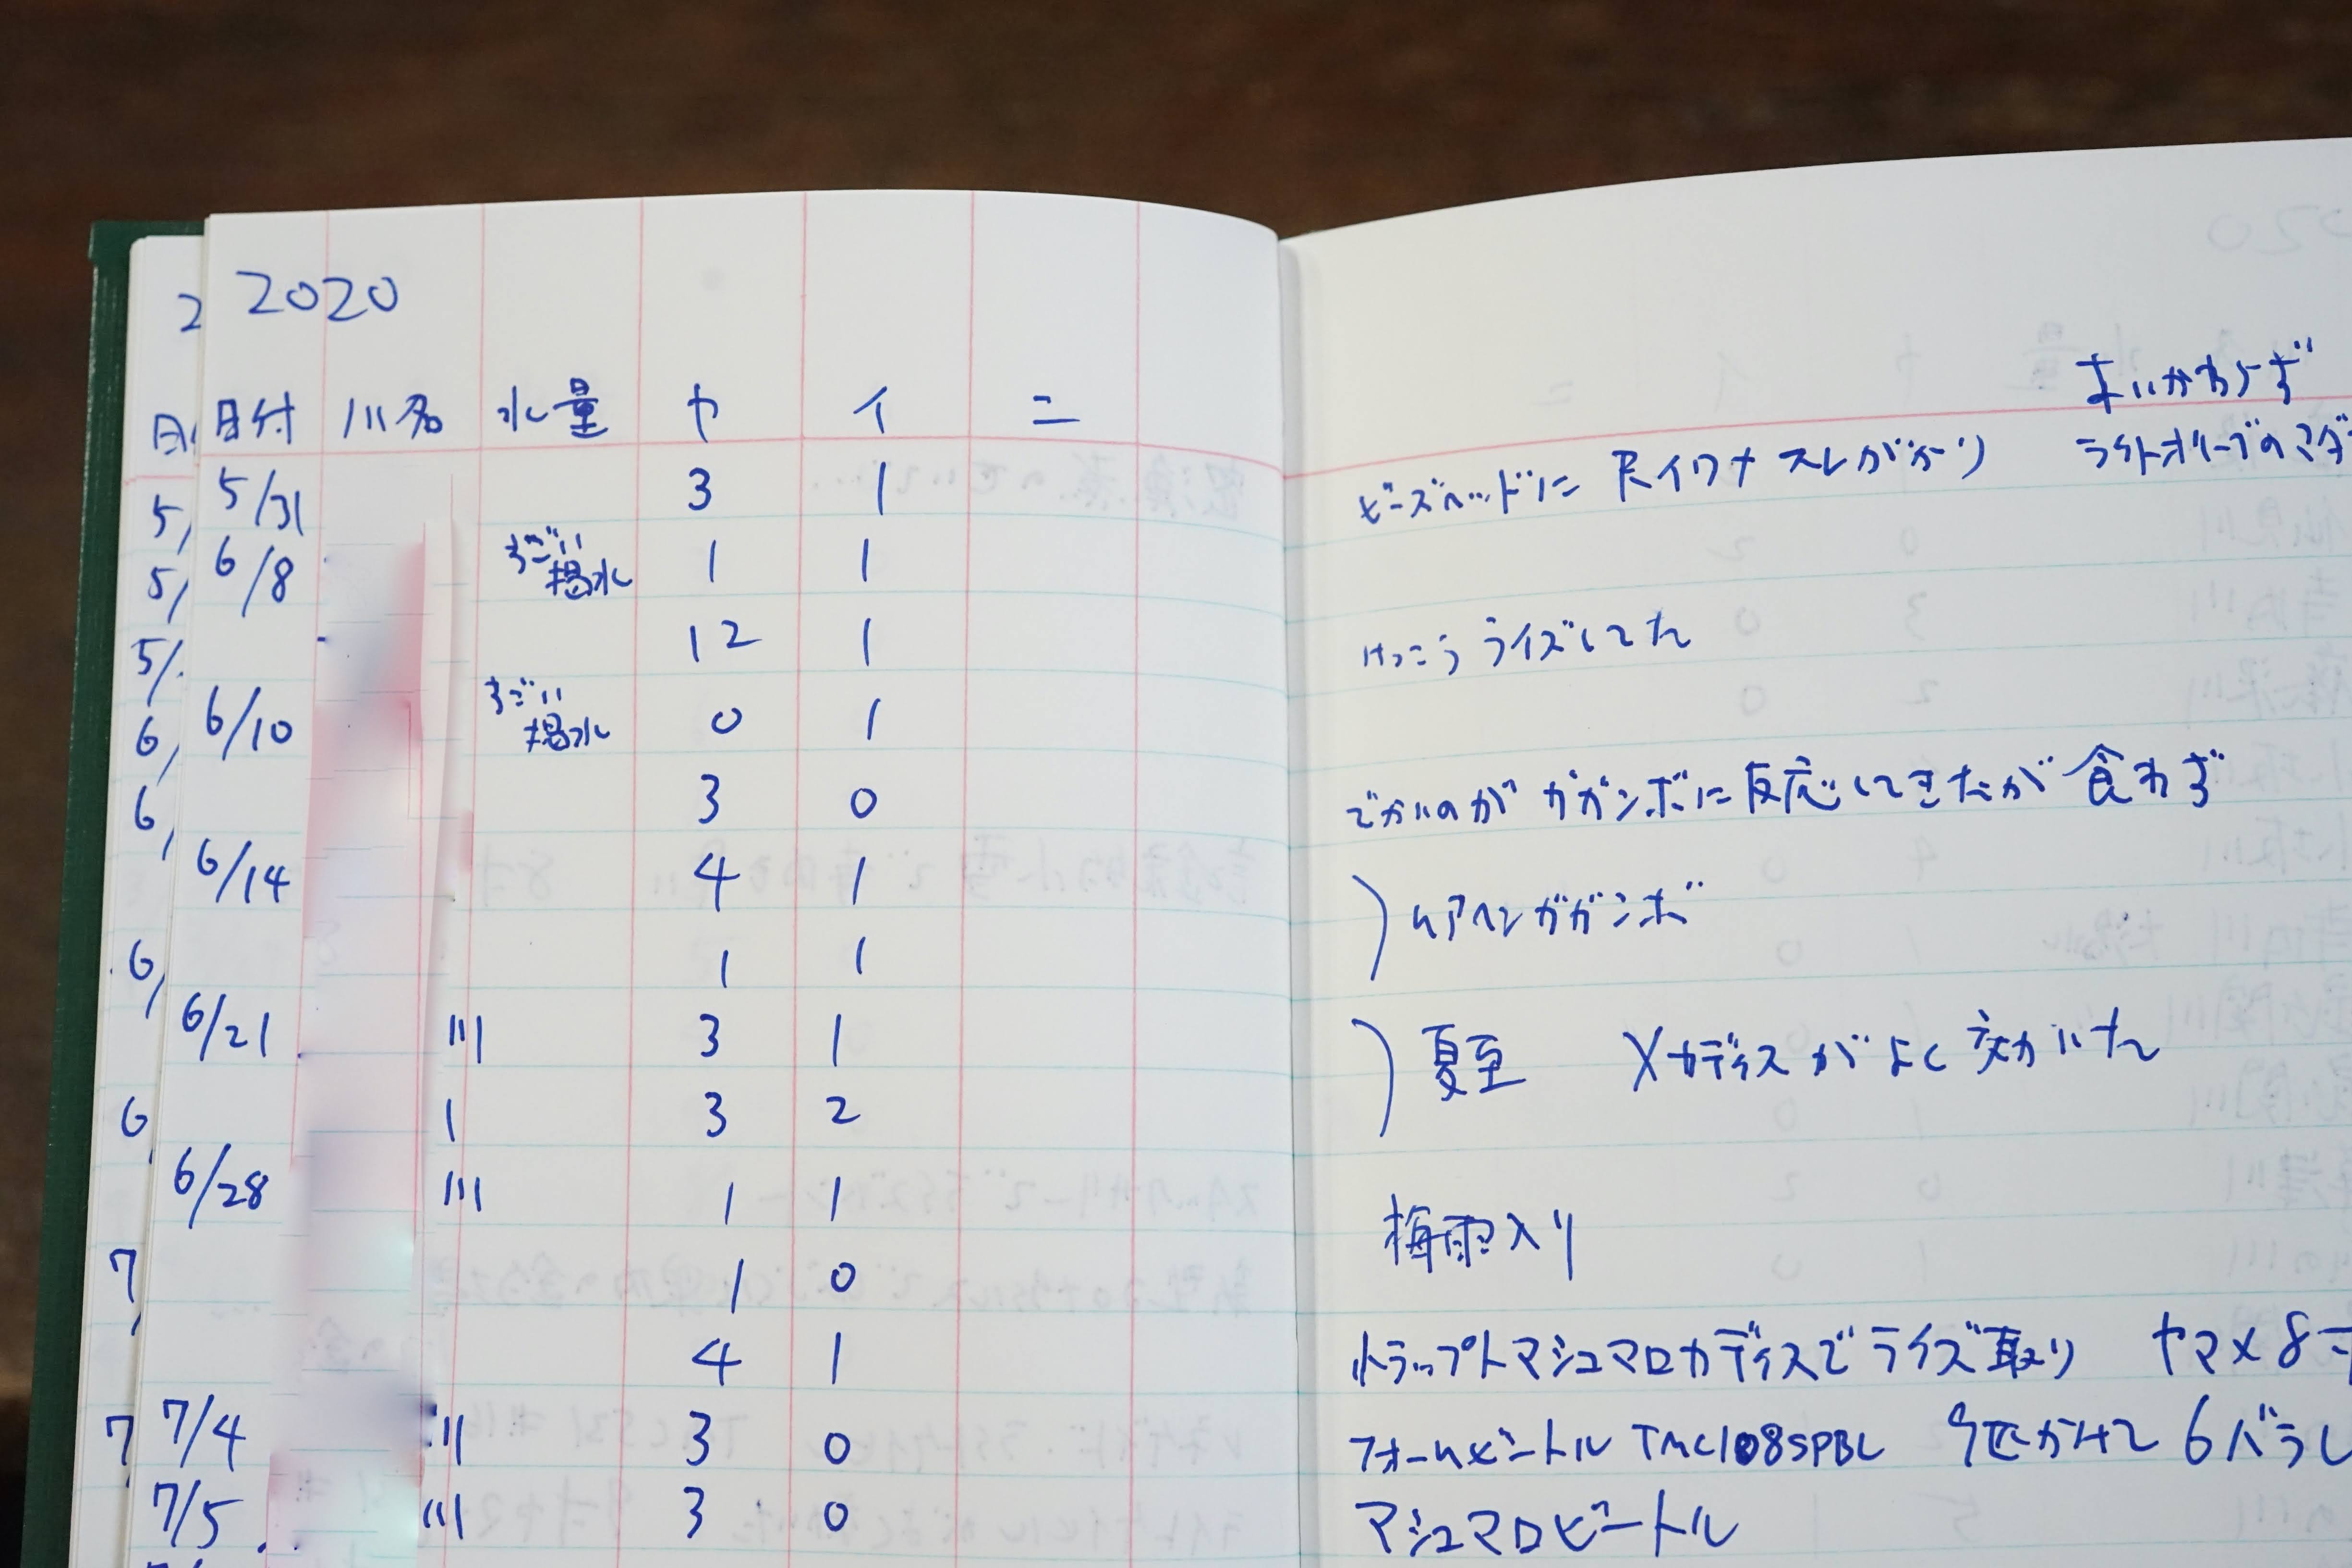 2020
日付 川名 水量 ヤ イ ニ
5/31 3 1
6/8 すごい渇水 1 1
12 1
6/10 すごい渇水 0 1
3 0
6/14 4 1
1 1
6/21 川 3 1
3 2
6/28 川 1 1
1 0
4 1
7/4 川 3 0
7/5 川 3 0
あいかわらず
ビーズヘッドに 尺イワナ スレがかり ライトオリーブのマダ
けっこう ライズしてた
でかいのが ガガンボに反応してきたが 食わず
) CDCガガンボ
) 夏至 Xカディスが よく 効いた
梅雨入り
トラップトマシュマロカディスで ライズ取り ヤマメ8
フォームビートル TMC108SPBL 9匹かけて 6バラし
マシュマロビートル